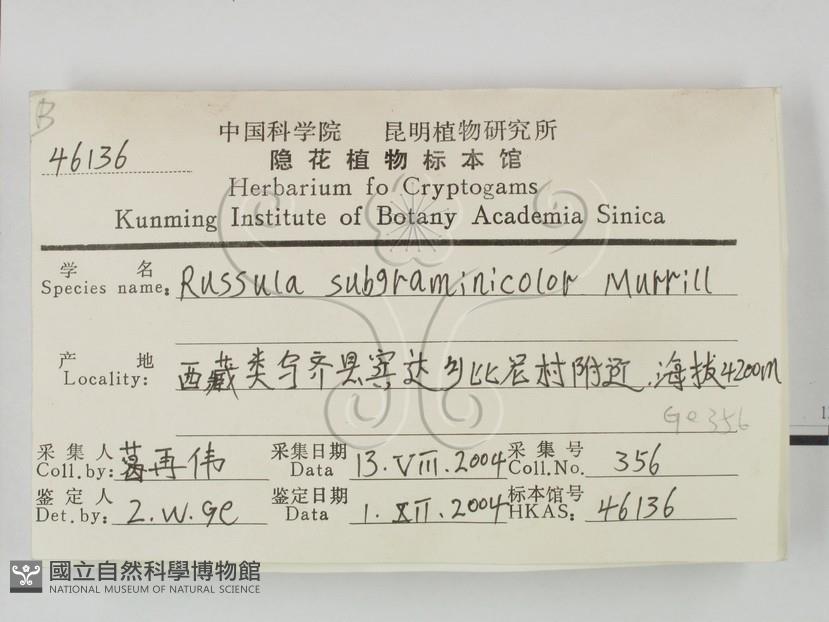 B
46136
中国科学院 昆明植物研究所
隐花植物标本馆
Herbarium fo Cryptogams
Kunming Institute of Botany Academia Sinica
学 名
Species name: Russula subgraminicolor Murrill
产 地
Locality: 西藏类乌齐县宾达乡比岩村附近,海拔4200m
Ge356
采集人 葛再伟 采集日期 采集号
Coll.by: Data 13.VIII.2004 Coll.No. 356
鉴定人 鉴定日期 标本馆号
Det.by: Z.W.Ge Data 1.XII.2004 HKAS: 46136
國立自然科學博物館
NATIONAL MUSEUM OF NATURAL SCIENCE